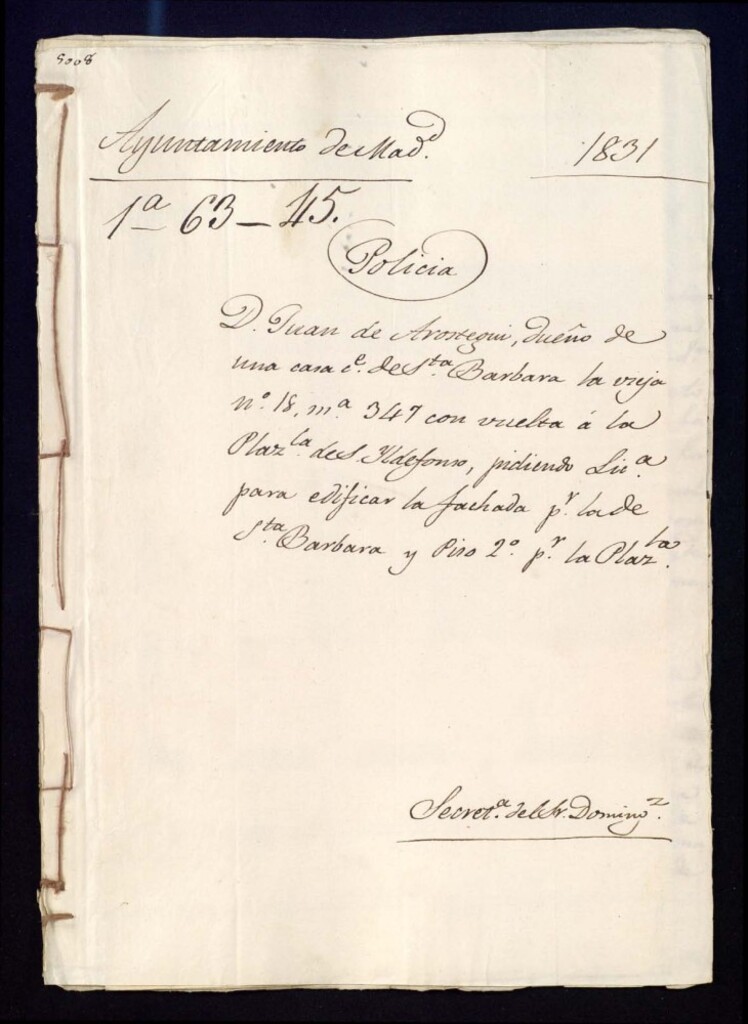 5008
Ayuntamiento de Mad.d
1831
1a 63-45.
Policia
D. Juan de Arostegui, dueño de
una casa c.e de S.ta Barbara la vieja
n.o 18, m.a 347 con vuelta á la
Plaz.la de S. Yldefonso, pidiendo Lic.a
para edificar la fachada p.r la de
S.ta Barbara y Piso 2.o p.r la Plaz.la
Secret.a del Sr. Doming.z